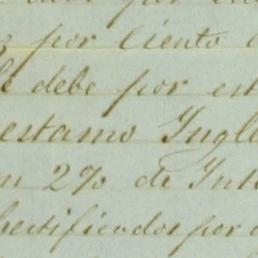 por ciento
debe por est
estamo Ingle
n 2% de Int
hectificados por